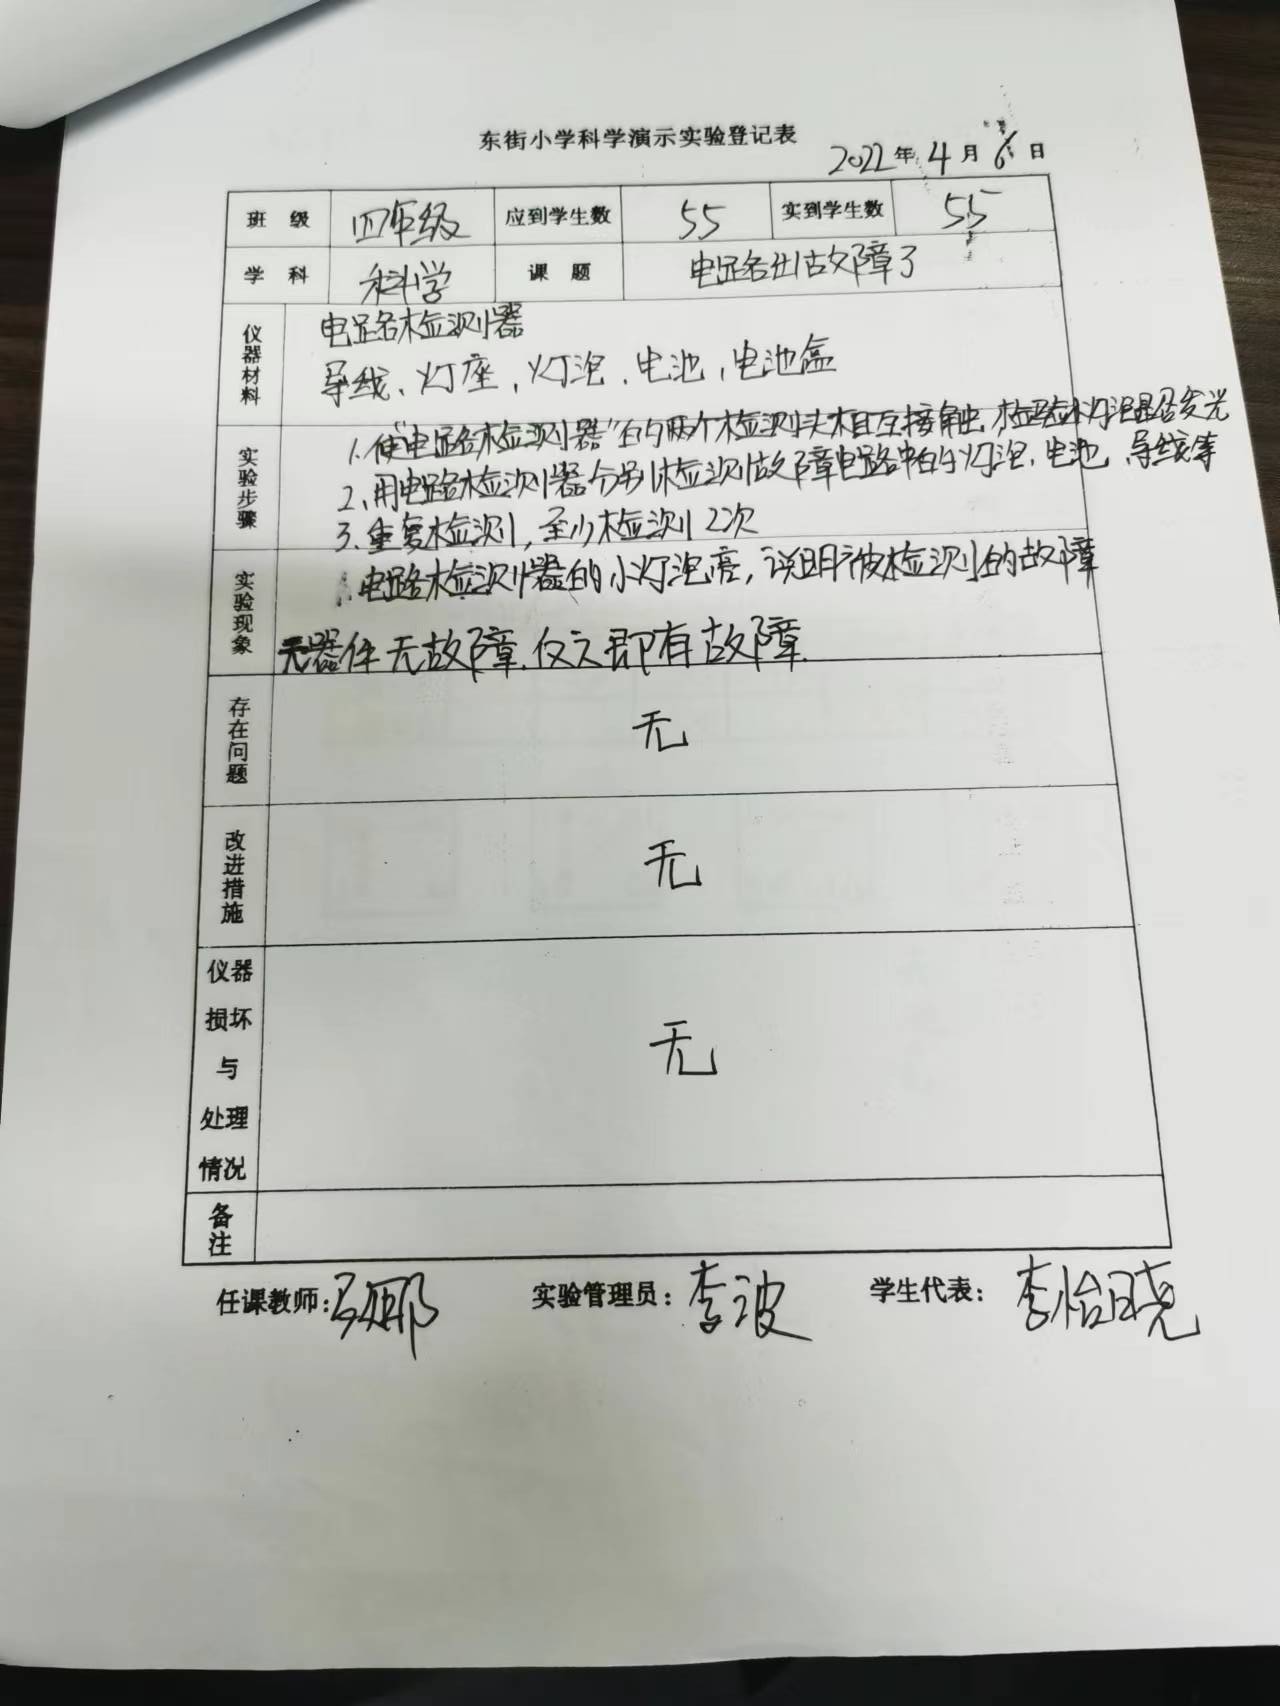 东街小学科学演示实验登记表
2022年4月6日
班 级 四年级 应到学生数 55 实到学生数 55
学 科 科学 课 题 电路出故障了
仪器材料
电路检测器
导线、灯座、灯泡、电池、电池盒
实验步骤
1、使"电路检测器"的两个检测头相互接触,检验小灯泡是否发光
2、用电路检测器分别检测故障电路中的灯泡、电池、导线等
3、重复检测,至少检测2次
实验现象
1.电路检测器的小灯泡亮,说明被检测的故障
元器件无故障.反之即有故障.
存在问题
无
改进措施
无
仪器
损坏
与
处理
情况
无
备注
任课教师: 实验管理员:李波 学生代表:李怡晓